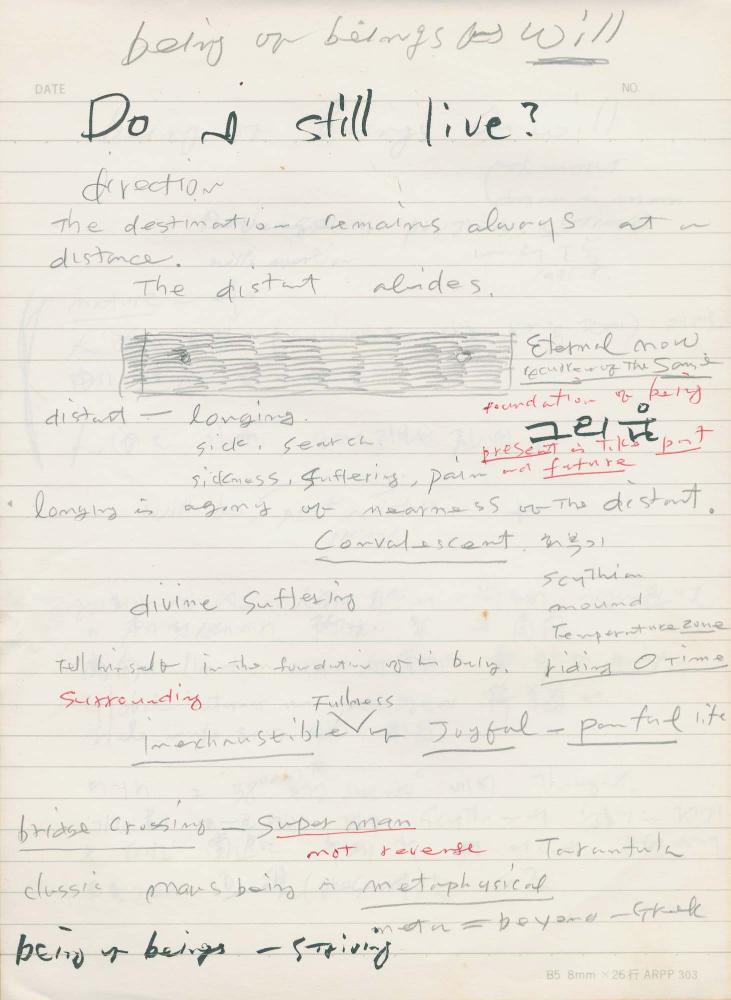 being of beings as Will
DATE
NO.
Do I still live?
direction
The destination remains always at a
distance.
The distant abides.
Eternal now
recurrence of The Same
foundation of being
distant — longing.
그리움
sick, search
present is Time past
and future
sickness, suffering, pain
longing is agony of nearness of The distant.
Convalescent 회복기
Scythian
divine Suffering
mound
Temperature zone
Tell himself in The foundation of his being.
riding Time
Surrounding
Fullness
inexhaustible of Joyful — painful life
bridge crossing — Super man
not revenge Tarantula
classic man's being is metaphysical
meta = beyond — Greek
being of beings — Striving
B5 8mm × 26行 ARPP 303